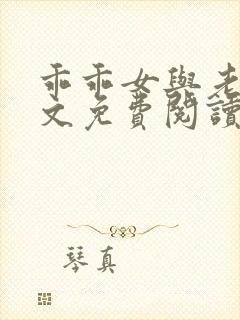 乖乖女與老
文免費閱讀
琴真